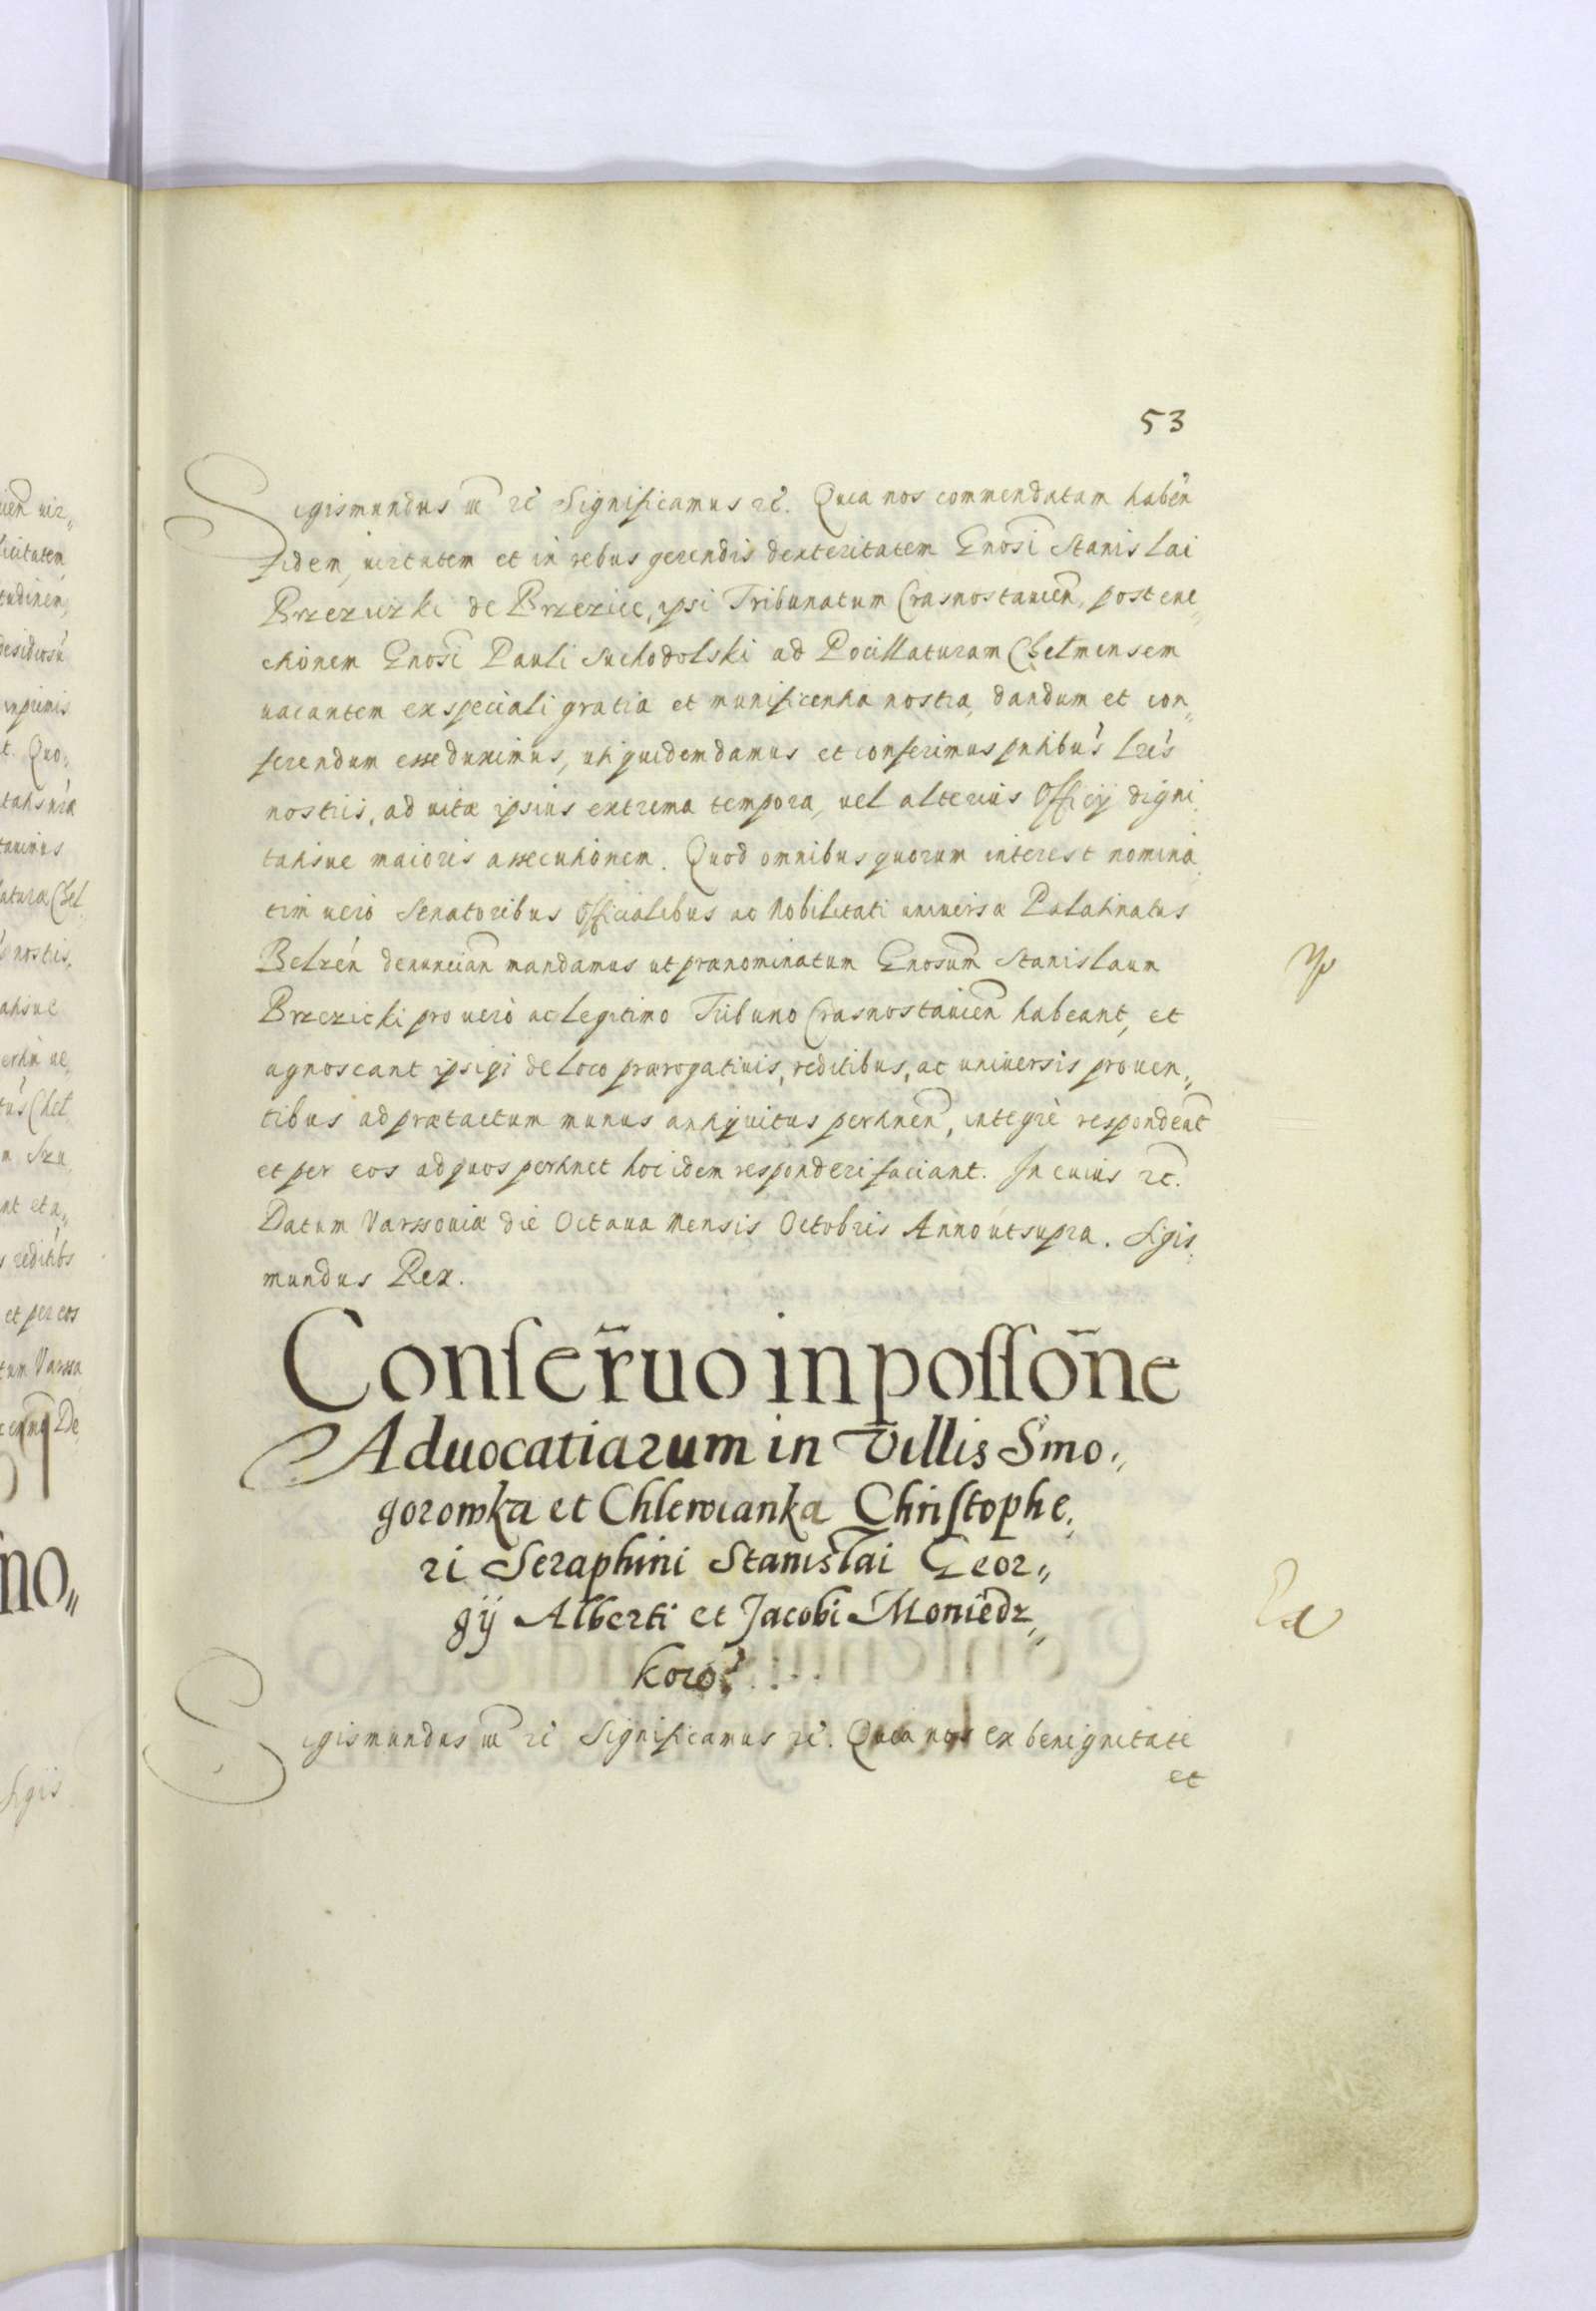 53
Sigismundus III etc Significamus etc. Quia nos commendatam haben̄
fidem, uirtutem et in rebus gerendis dexteritatem Gnosi Stanislai
Brzeziczki de Brzezice, ipsi Tribunatum Crasnostauien̄, post eue„
ctionem Gnosi Pauli Suchodolski ad Pocillaturam Chelmensem
uacantem ex speciali gratia et munificentia nostra, dandum et con„
ferendum esse duximus, uti quidem damus et conferimus pntibus lris
nostris, ad uitæ ipsius extrema tempora, uel alterius Officij digni„
tatisue maioris assecutionem. Quod omnibus quorum interest nomina„
tim uero Senatoribus Officialibus ac Nobilitati uniuersæ Palatinatus
Belzen̄ denuncian̄ mandamus ut prænominatum Gnosum Stanislaum
Brzezicki pro uero ac legitimo Tribuno Crasnostauien̄ habeant, et
agnoscant ipsiqȝ de loco prærogatiuis, reditibus, ac uniuersis prouen„
tibus ad prætactum munus antiquitus pertinen̄, integre respondeāt
et per eos ad quos pertinet hoc idem responderi faciant. In cuius etc.
Datum Varssouiæ die Octaua Mensis Octobris Anno ut supra. Sigis„
mundus Rex.
Conser̄uo in possōne
Aduocatiarum in Villis Smo„
gorowka et Chlewianka Christophe„
ri Seraphini Stanislai Geor„
gij Alberti et Jacobi Moniedz„
koro᷑.
Sigismundus III etc Significamus etc. Quia nos ex benignitate
et